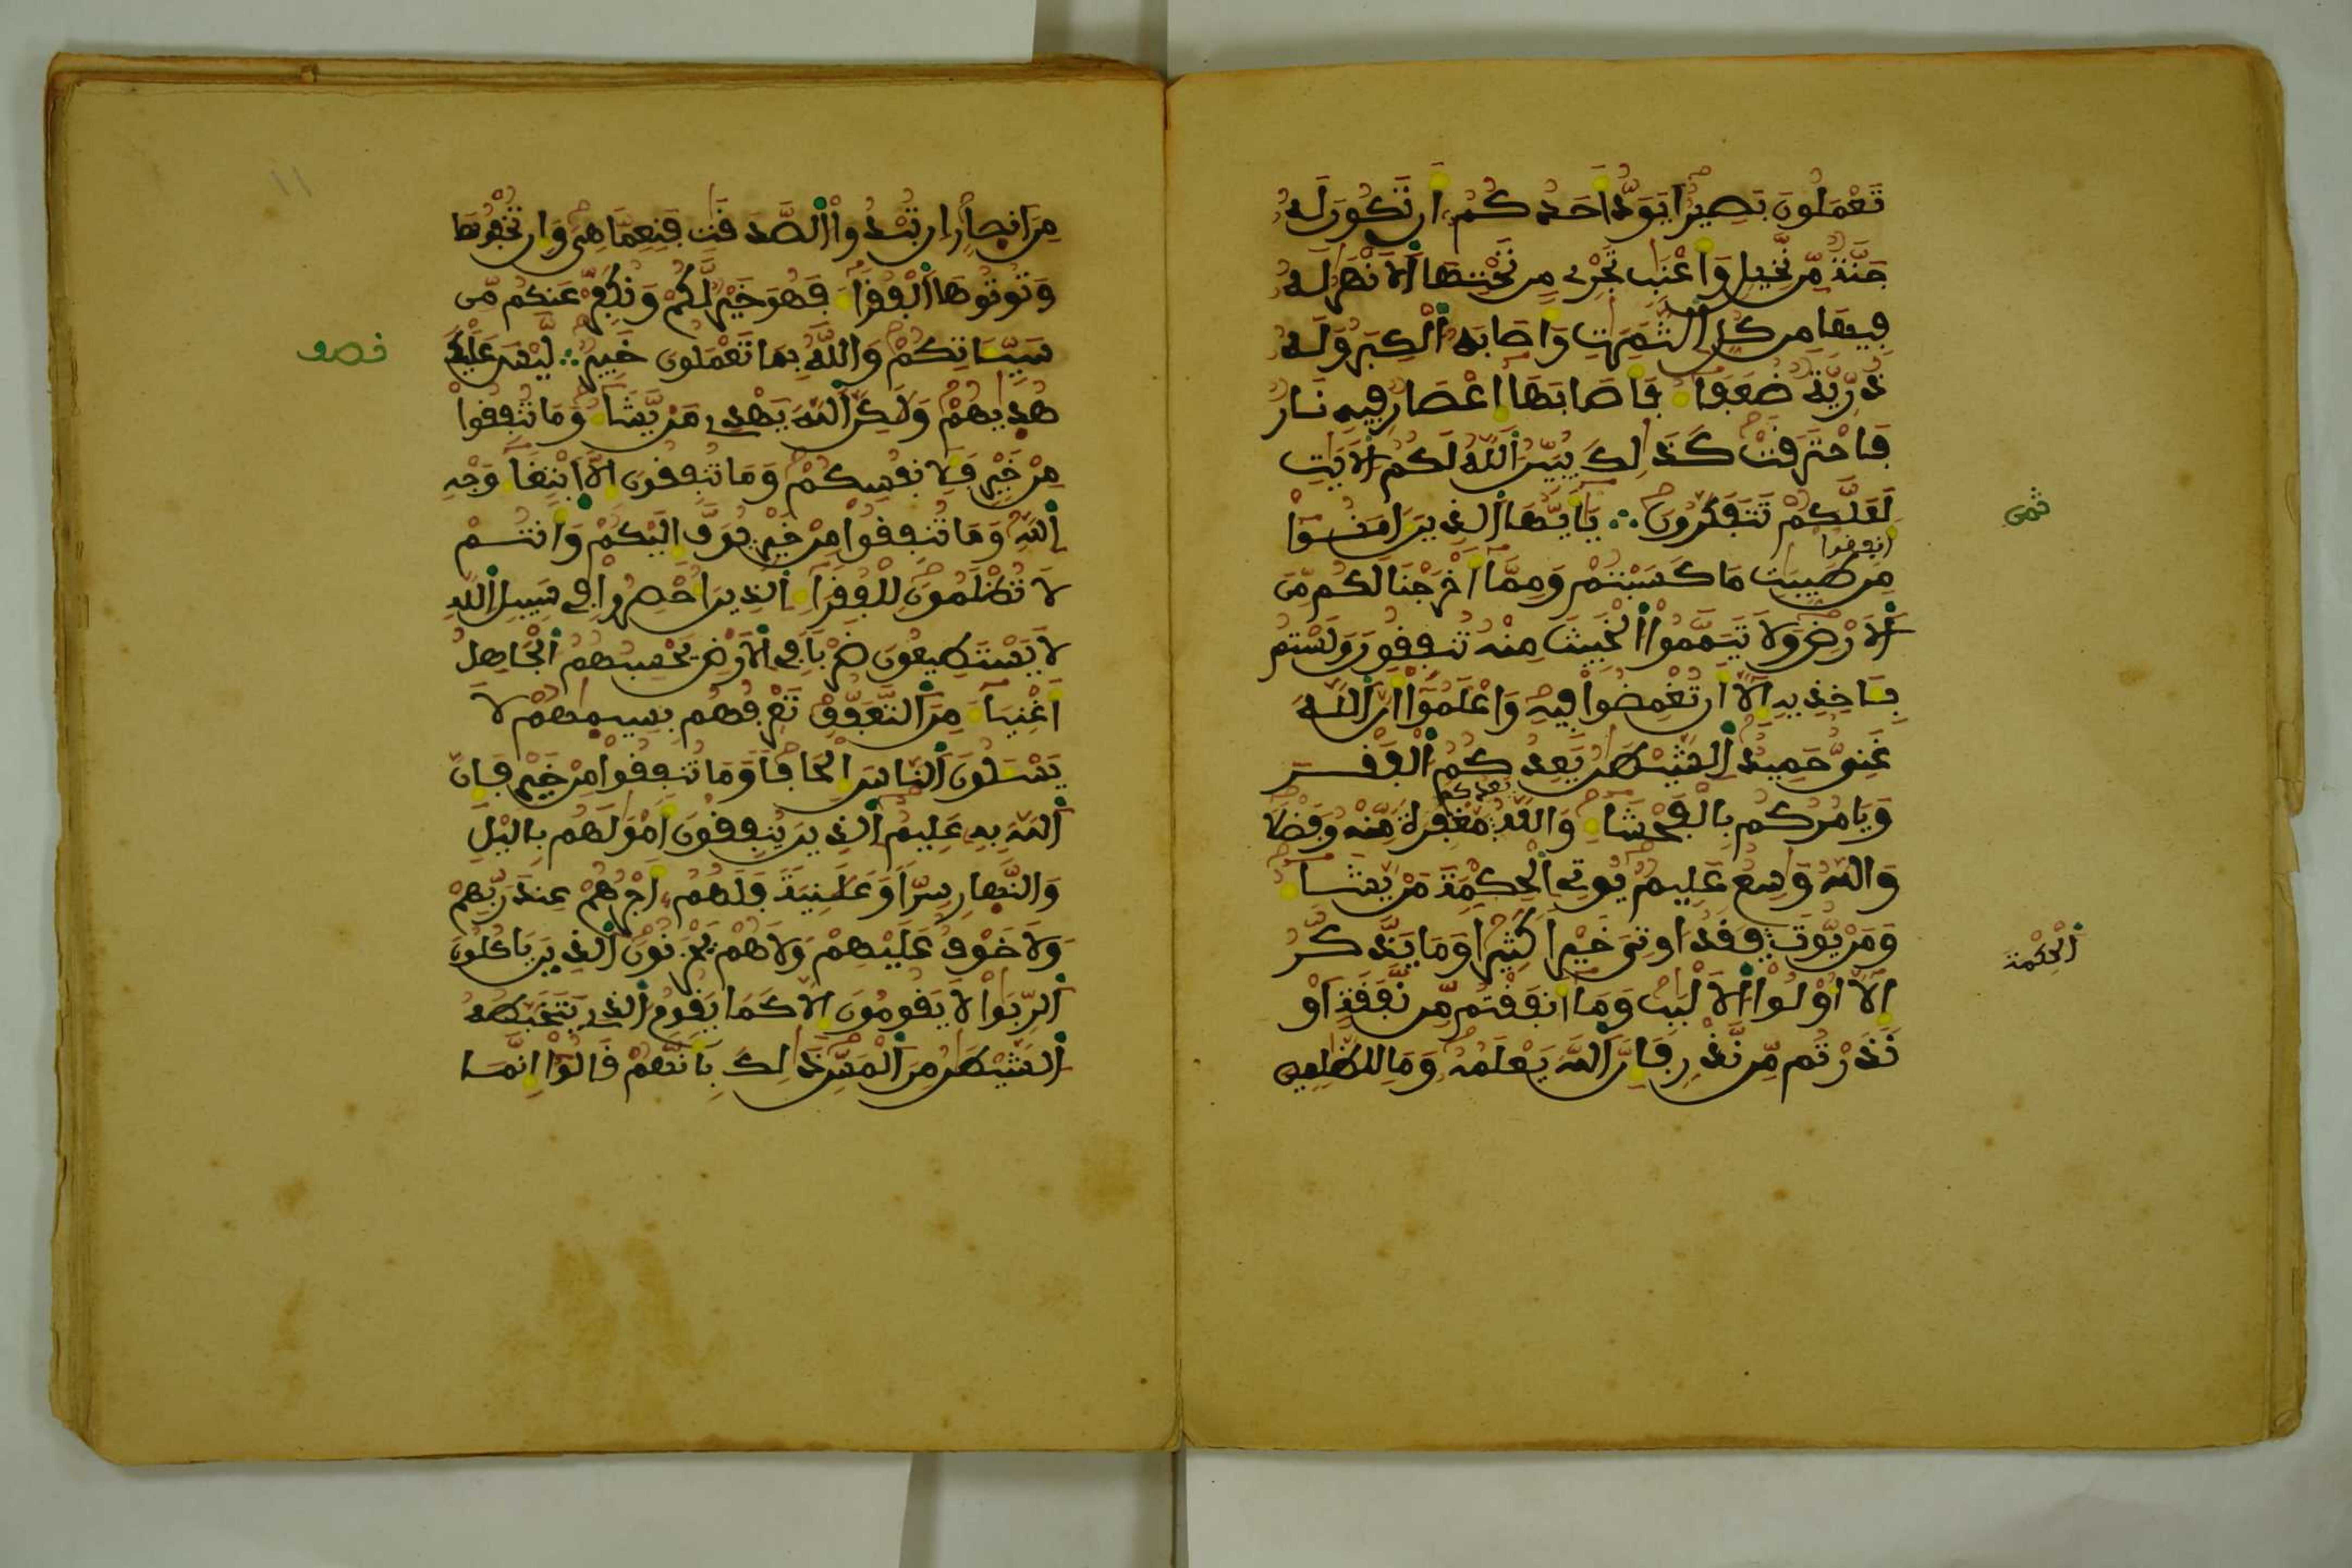 تَعْمَلُونَ بَصِيرٌ اَيَوَدُّ أَحَدُكُمُ أَن تَكُونَ لَهُ
جَنَّةٌ مِّن نَّخِيلٍ وَأَعْنَبٍ تَجْرِي مِن تَحْتِهَا اَلاَنْهَرُ لَهُ
فِيهَا مِن كُلِّ الثَّمَرَتِ وَأَصَابَهُ الْكِبَرُ وَلَهُ
ذُرِّيَّةٌ ضُعَفَآءُ فَأَصَابَهَا إِعْصَارٌ فِيهِ نَارٌ
فَاحْتَرَقَتْ كَذَلِكَ يُبَيِّنُ اللَّهُ لَكُمُ الاَيَتِ
لَعَلَّكُمْ تَتَفَكَّرُونَ ∴ يَأَيُّهَا الذِينَ ءَامَنُوا
ثمن
أنفقوا
مِن طَيِّبَتِ مَا كَسَبْتُمْ وَمِمَّا أَخْرَجْنَا لَكُم مِّنَ
اَلاَرْضِ وَلاَ تَيَمَّمُوا الْخَبِيثَ مِنْهُ تُنفِقُونَ وَلَسْتُم
بِـَٔاخِذِيهِ إِلاَّ أَن تُغْمِضُوا فِيهِ وَاعْلَمُوا أَنَّ اللَّهَ
غَنِيٌّ حَمِيدٌ الشَّيْطَنُ يَعِدُكُمُ الْفَقْرَ
يعدكم
وَيَامُرُكُم بِالْفَحْشَآءِ وَاللَّهُ مَّغْفِرَةً مِّنْهُ وَفَضْلاً
وَاللَّهُ وَسِعٌ عَلِيمٌ يُوتِي الْحِكْمَةَ مَن يَّشَآءُ
وَمَن يُّوتَ فَقَدُ اوتِيَ خَيْراً كَثِيراً وَمَا يَذَّكَّرُ
اَلْحِكْمَةَ
إِلاَّ أُوْلُوا الاَلْبَبِ وَمَا أَنفَقْتُم مِّن نَّفَقَةٍ أَوْ
نَذَرْتُم مِّن نَّذْرٍ فَإِنَّ اللَّهَ يَعْلَمُهُ وَمَا لِلظَّلِمِينَ
١١
مِنَ انصِارٍ إِن تُبْدُوا الصَّدَقَتِ فَنِعِمَّا هِيَ وَإِن تُخْفُوهَا
وَتُوتُوهَا الْفُقَرَآءَ فَهُوَ خَيْرٌ لَّكُمْ وَنُكَفِّرْ عَنكُم مِّن
سَيِّـَٔاتِكُمْ وَاللَّهُ بِمَا تَعْمَلُونَ خَبِيرٌ ∴ لَّيْسَ عَلَيْكَ
نصف
هُدَيهُمْ وَلَكِنَّ اللَّهَ يَهْدِي مَن يَّشَآءُ وَمَا تُنفِقُوا
مِنْ خَيْرٍ فَلِأَنفُسِكُمْ وَمَا تُنفِقُونَ إِلاَّ ابْتِغَآءَ وَجْهِ
اللَّهِ وَمَا تُنفِقُوا مِنْ خَيْرٍ يُوَفَّ إِلَيْكُمْ وَأَنتُمْ
لاَ تُظْلَمُونَ لِلْفُقَرَآءِ الذِينَ أُحْصِرُوا فِي سَبِيلِ اللَّهِ
لاَ يَسْتَطِيعُونَ ضَرْباً فِي الاَرْضِ يَحْسِبُهُمُ الْجَاهِلُ
أَغْنِيَآءَ مِنَ التَّعَفُّفِ تَعْرِفُهُم بِسِيمَهُمْ لاَ
يَسْـَٔلُونَ النَّاسَ إِلْحَافاً وَمَا تُنفِقُوا مِنْ خَيْرٍ فَإِنَّ
اللَّهَ بِهِ عَلِيمٌ الذِينَ يُنفِقُونَ أَمْوَلَهُم بِاليْلِ
وَالنَّهَارِ سِرّاً وَعَلَنِيَةً فَلَهُمُ أَجْرُهُمْ عِندَ رَبِّهِمْ
وَلاَ خَوْفٌ عَلَيْهِمْ وَلاَ هُمْ يَحْزَنُونَ الذِينَ يَاكُلُونَ
الرِّبَوا لاَ يَقُومُونَ إِلاَّ كَمَا يَقُومُ الذِي يَتَخَبَّطُهُ
الشَّيْطَنُ مِنَ الْمَسِّ ذَلِكَ بِأَنَّهُمْ قَالُوا إِنَّمَا